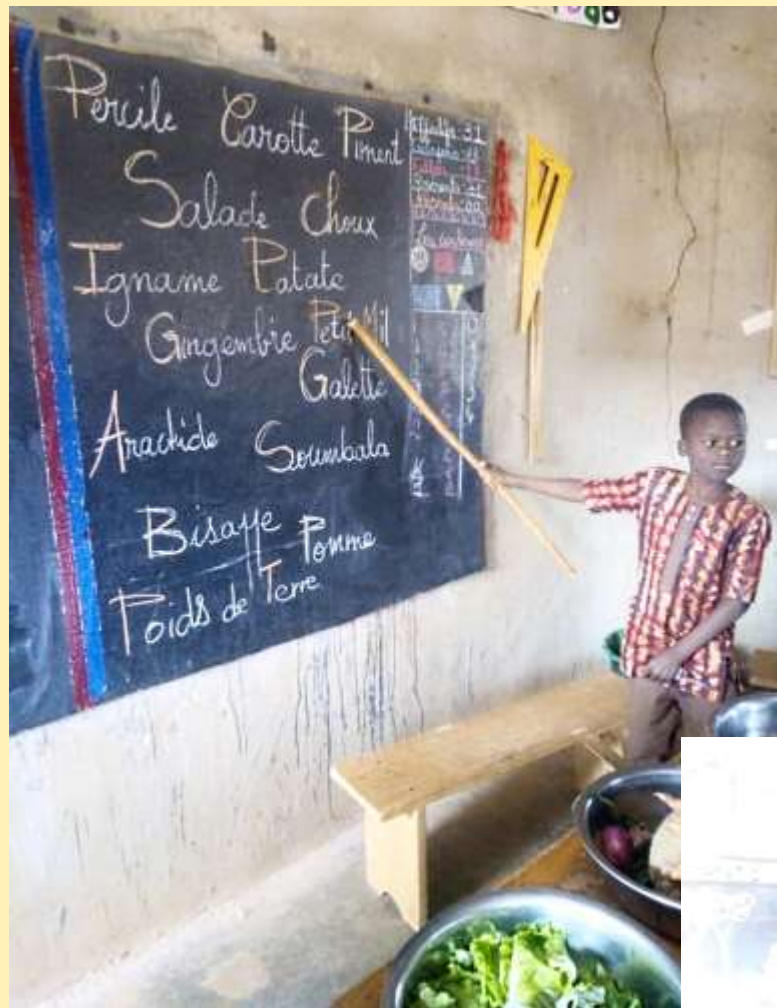 Percile Carotte Piment
Salade Choux
Igname Patate
Gingembre Petit Mil
Galette
Arachide Soumbala
Bisaye Pomme
Poids de Terre